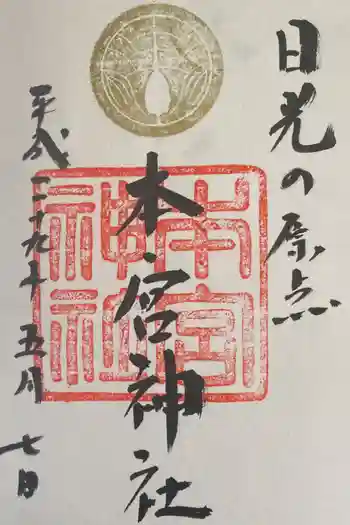 日光の原点
本宮神社
平成二十九年五月七日
本宮
神社